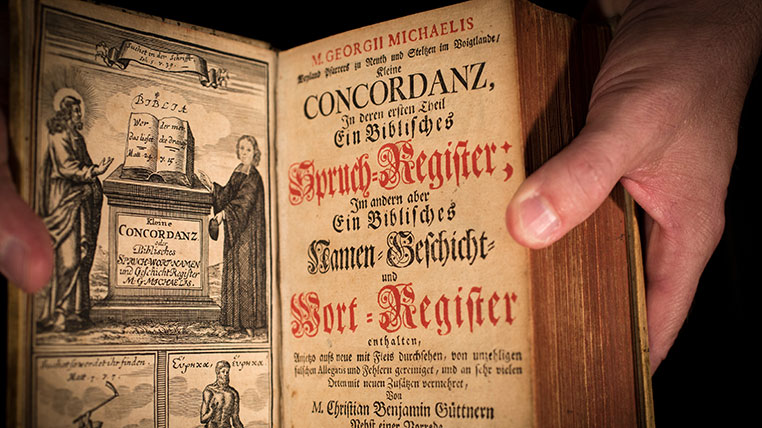 Suchet in der Schrifft.
Joh. 5. v. 39.
BIBLIA
Wer der
das lieset
Matt 24. v. 15
Kleine
CONCORDANZ
oder
Biblisches
SPRUCH-WORT NAMEN
und Geschicht Register
M. G. MICHAELIS.
Suchet so werdet ihr finden.
Matt 7. v. 7
Εὕρηκα Εὕρηκα
M. GEORGII MICHAELIS
Weyland Pfarrers zu Reuth und Steltzen im Voigtlande/
Kleine
CONCORDANZ,
In deren ersten Theil
Ein Biblisches
Spruch-Register;
Im andern aber
Ein Biblisches
Namen-Geschicht-
und
Wort-Register
enthalten,
Anjetzo aufs neue mit Fleis durchsehen, von unzehligen
falschen Allegatis und Fehlern gereiniget, und an sehr vielen
Orten mit neuen Zusätzen vermehret,
Von
M. Christian Benjamin Güttnern
Nebst einer Vorrede